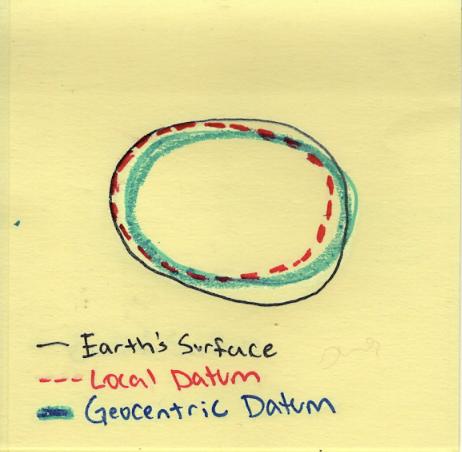 Earth's Surface
Local Datum
Geocentric Datum